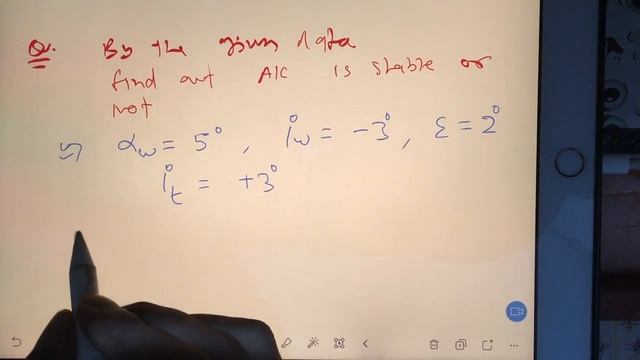 Q. By the given data
find out A/C is stable or
not
=> αw = 5°, iw = -3°, ε = 2°
it = +3°